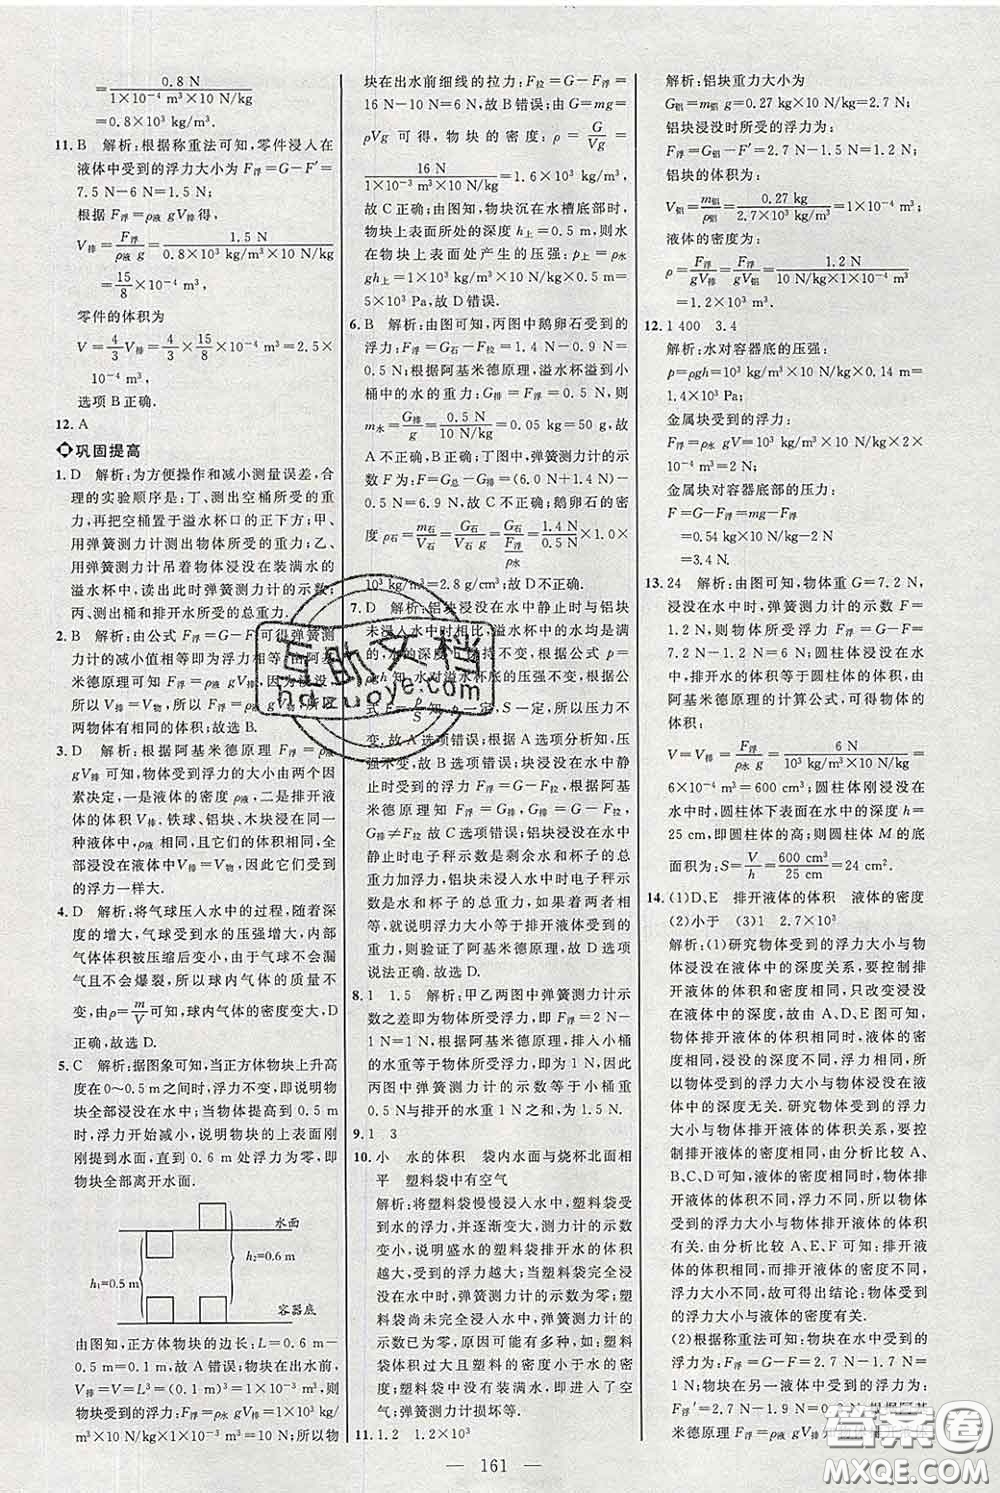 =0.8 N/(1×10⁻⁴ m³×10 N/kg)
=0.8×10³ kg/m³.
11. B 解析:根据称重法可知,零件浸入在
液体中受到的浮力大小为 F浮=G−F′=
7.5 N−6 N=1.5 N;
根据 F浮=ρ液 gV排得,
V排=F浮/(ρ液 g)=1.5 N/(0.8×10³ kg/m³×10 N/kg)=
15/8×10⁻⁴ m³;
零件的体积为
V=4/3 V排=4/3×15/8×10⁻⁴ m³=2.5×
10⁻⁴ m³,
选项 B 正确.
12. A
巩固提高
1. D 解析:为方便操作和减小测量误差,合
理的实验顺序是:丁、测出空桶所受的重
力,再把空桶置于溢水杯口的正下方;甲、
用弹簧测力计测出物体所受的重力;乙、
用弹簧测力计吊着物体浸没在装满水的
溢水杯中,读出此时弹簧测力计的示数;
丙、测出桶和排开水所受的总重力.
2. B 解析:由公式 F浮=G−F 可得弹簧测
力计的减小值相等即为浮力相等,由阿基
米德原理可知 V排相等,因为物体浸没,
所以 V排=V物,所以物体体积相等,所以
两物体有相同的体积;故选 B.
3. D 解析:根据阿基米德原理 F浮=ρ液
gV排 可知,物体受到浮力的大小由两个因
素决定,一是液体的密度 ρ液,二是排开液
体的体积 V排.铁球、铝块、木块浸没在同
一种液体中,ρ液 相同,且它们的体积相同,
全部浸没在液体中 V排=V物,所以它们受到
的浮力一样大.
4. D 解析:将气球压入水中的过程,随着
深度的增大,气球受到水的压强增大,内部
气体体积被压缩后变小,由于气球不会漏
气且不会爆裂,所以球内气体的质量不
变,由ρ=m/V可知,球内气体的密度变大,D
正确,故选 D.
5. C 解析:据图象可知,当正方体物块上升高
度在 0~0.5 m 之间时,浮力不变,即说明物
块全部浸没在水中;当物体提高到 0.5 m
时,浮力开始减小,说明物块的上表面刚
刚提到水面,直到 0.6 m 处浮力为零,即
物块全部离开水面.
水面
h₂=0.6 m
h₁=0.5 m
容器底
由图知,正方体物块的边长:L=0.6 m−
0.5 m=0.1 m;故 A 错误;物块在出水前,
V排=V=L³=(0.1 m)³=1×10⁻³ m³,则
物块受到的浮力:F浮=ρ液 gV排=1×10³ kg/
m³×10 N/kg×1×10⁻³ m³=10 N;所以物
块在出水前细线的拉力:F拉=G−F浮=
16 N−10 N=6 N,故 B 错误;由 G=mg=
ρVg 可得,物块的密度:ρ=G/Vg=
16 N/(1×10⁻³ m³×10 N/kg)=1.6×10³ kg/m³,
故 C 正确;由图知,物块沉在水槽底部时,
物块上表面所处的深度 h上=0.5 m,则水
在物块上表面处产生的压强:p上=ρ水
gh上=1×10³ kg/m³×10 N/kg×0.5 m=
5×10³ Pa,故 D 错误.
6. B 解析:由图可知,丙图中鹅卵石受到的
浮力:F浮=G石−F拉=1.4 N−0.9 N=
0.5 N;根据阿基米德原理,溢水杯溢到小
桶中的水的重力:G排=F浮=0.5 N,则
m水=G排/g=0.5 N/(10 N/kg)=0.05 kg=50 g,故
A 不正确,B 正确;丁图中,弹簧测力计的示
数 F 为:F=G总−F浮=(6.0 N+1.4 N)−
0.5 N=6.9 N,故 C 不正确;鹅卵石的密
度 ρ石=m石/V石=G石/V石g=G石/(F浮/ρ水)=1.4 N/0.5 N×1.0×
10³ kg/m³=2.8 g/cm³;故 D 不正确.
7. D 解析:铝块浸没在水中静止时与铝块
未浸入水中时相比,溢水杯中的水均是满
的,水的深度 h 保持不变,根据公式 p=
ρgh 知,水对溢水杯底的压强不变,根据公
式 F=pS 知,p一定,S一定,所以压力不
变,故 A 选项错误;根据 A 选项分析知,压
强不变,故 B 选项错误;铝块浸没在水中静
止时受到的浮力 F浮=G−F,根据阿基
米德原理知 F浮=G排,所以 G排=F浮,
G排≠F 故 C 选项错误;铝块浸没在水中
静止时电子秤示数是剩余水和杯子的总
重力加浮力,铝块未浸入水中时电子秤示
数是水和杯子的总重力,如果两者相等,
则验证了阿基米德原理,故 D 选项
说法正确.故选 D.
8. 1 1.5 解析:甲乙两图中弹簧测力计示
数之差即为物体所受浮力,即 F=2 N−
1 N=1 N;根据阿基米德原理,排入小桶中
的水重等于物体所受浮力,即为 1 N;因此
丙图中弹簧测力计的示数等于小桶重
0.5 N 与排开的水重 1 N 之和,为 1.5 N.
9. 1 3
10. 小 水的体积 袋内水面与烧杯水面相
平 塑料袋中有空气
解析:将塑料袋慢慢浸入水中,塑料袋受
到水的浮力,并逐渐变大,测力计的示数
变小,说明盛水的塑料袋排开水的体积
越大,受到的浮力越大;当塑料袋完全浸
没在水中时,弹簧测力计的示数为零;塑
料袋完全浸入水中后,弹簧测力计的
示数已不为零,原因可能有多种,如:塑料
袋体积过大或塑料的密度小于水的密
度;塑料袋中没有装满水,即进入了空
气;弹簧测力计损坏等.
11. 1.2 1.2×10³
解析:铝块重力大小为
G铝=m铝 g=0.27 kg×10 N/kg=2.7 N;
铝块浸没时所受的浮力为
F浮=G铝−F′=2.7 N−1.5 N=1.2 N;
铝块的体积为:
V铝=m铝/ρ铝=0.27 kg/(2.7×10³ kg/m³)=1×10⁻⁴ m³;
液体的密度为:
ρ=F浮/gV排=F浮/gV铝=1.2 N/(10 N/kg×1×10⁻⁴ m³)
=1.2×10³ kg/m³.
12. 1 400 3.4
解析:水对容器底的压强:
p=ρgh=10³ kg/m³×10 N/kg×0.14 m=
1.4×10³ Pa;
金属块受到的浮力:
F浮=ρ水 gV=10³ kg/m³×10 N/kg×2×
10⁻⁴ m³=2 N
金属块对容器底部的压力:
F=G−F浮=mg−F浮
=0.54 kg×10 N/kg−2 N
=3.4 N.
13. 24 解析:由图可知,物体重 G=7.2 N,
浸没在水中时,弹簧测力计的示数 F=
1.2 N,则物体所受浮力 F浮=G−F=
7.2 N−1.2 N=6 N;当圆柱体浸没在水
中,排开水的体积等于圆柱体的体积,由
阿基米德原理的计算公式,可得物体的
体积:
V=V排=F浮/ρ水g=6 N/(1×10³ kg/m³×10 N/kg)=
6×10⁻⁴ m³=600 cm³;圆柱体刚好浸没在
水中时,圆柱体下表面在水中的深度 h=
25 cm,即圆柱体的高;则圆柱体 M 的底
面积为:S=V/h=600 cm³/25 cm=24 cm².
14. (1)D、E 排开液体的体积 液体的密度
(2)小于 (3)1 2.7×10³
解析:(1)研究物体受到的浮力大小与物
体浸没在液体中的深度关系,要控制排
开液体的体积和密度相同,只改变浸没
在液体中的深度,故由 A、D、E 图可知,物
块排开液体的体积相同,液体的密
度相同,浸没的深度不同,浮力相同,所
以物体受到的浮力与物体浸没在液体
中的深度无关.研究物体受到的浮力大
小与排开液体的体积关系,
由分析比较 A、C、D 可知:排开液体的
体积不同,浮力不同,所以物体受到的浮
力大小与物体排开液体的体积
有关.由分析比较 A、E、F 可知:液体的
密度不同,浮力不同,故可得出结论:物体
受到的浮力大小与液体的密度有关.
(2)根据称重法可知:物块在水中受到的
浮力为:F浮=G−F=2.7 N−1.7 N=
1 N,物块在另一液体中受到的浮力为:
F浮′=2.7 N−1.9 N=0.8 N,根据阿基
米德原理 F浮=ρ液 gV排
互助文档
hdzuoye.com
答案卷
MXQE.COM
161